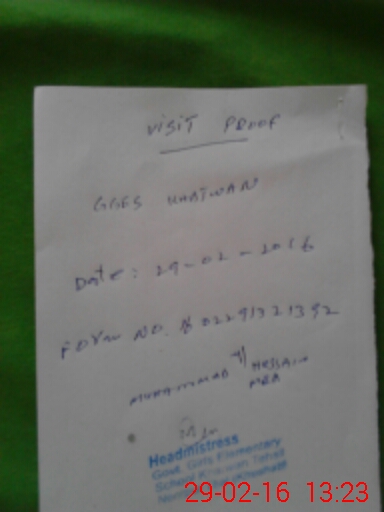 VISIT PROOF
GGES KHAIWAN
Date: 29-02-2016
Form NO. # 02291321392
MUHAMMAD HUSSAIN
MBA
Headmistress
Govt. Girls Elementary
School Khaiwan Tehsil
29-02-16 13:23